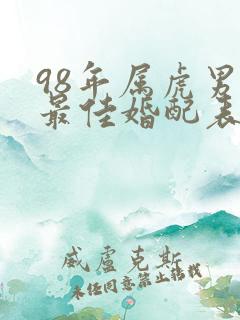 98年属虎男
最佳婚配表
威盧克斯
未任同意禁止轉載